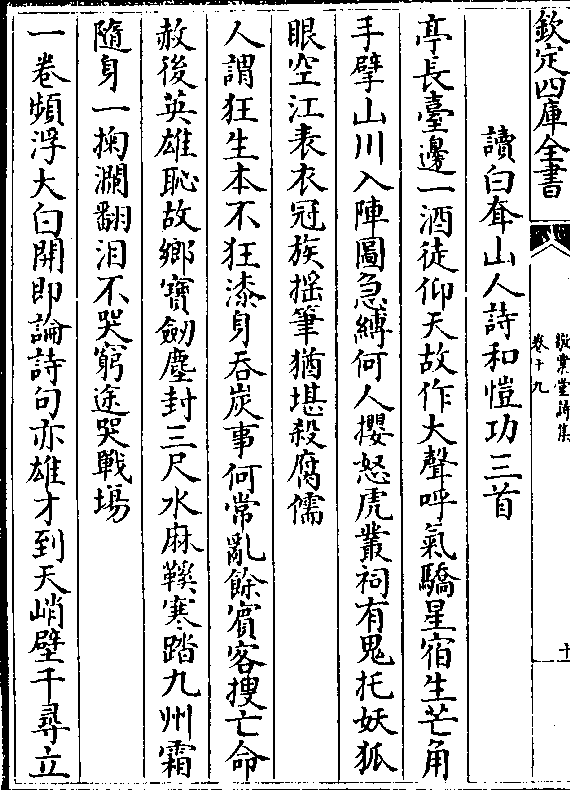 欽定四庫全書
敬業堂詩集
卷十九
十
讀白耷山人詩和愷功三首
亭長臺邊一酒徒仰天故作大聲呼氣驕星宿生芒角
手擘山川入陣圖急縛何人攖怒虎叢祠有鬼托妖狐
眼空江表衣冠族摇筆猶堪殺腐儒
人謂狂生本不狂漆身吞炭事何常亂餘賓客搜亡命
赦後英雄恥故鄉寶劒塵封三尺水麻鞵寒踏九州霜
隨身一掬瀾翻泪不哭窮途哭戰場
一卷頻浮大白開即論詩句亦雄才到天峭壁千尋立